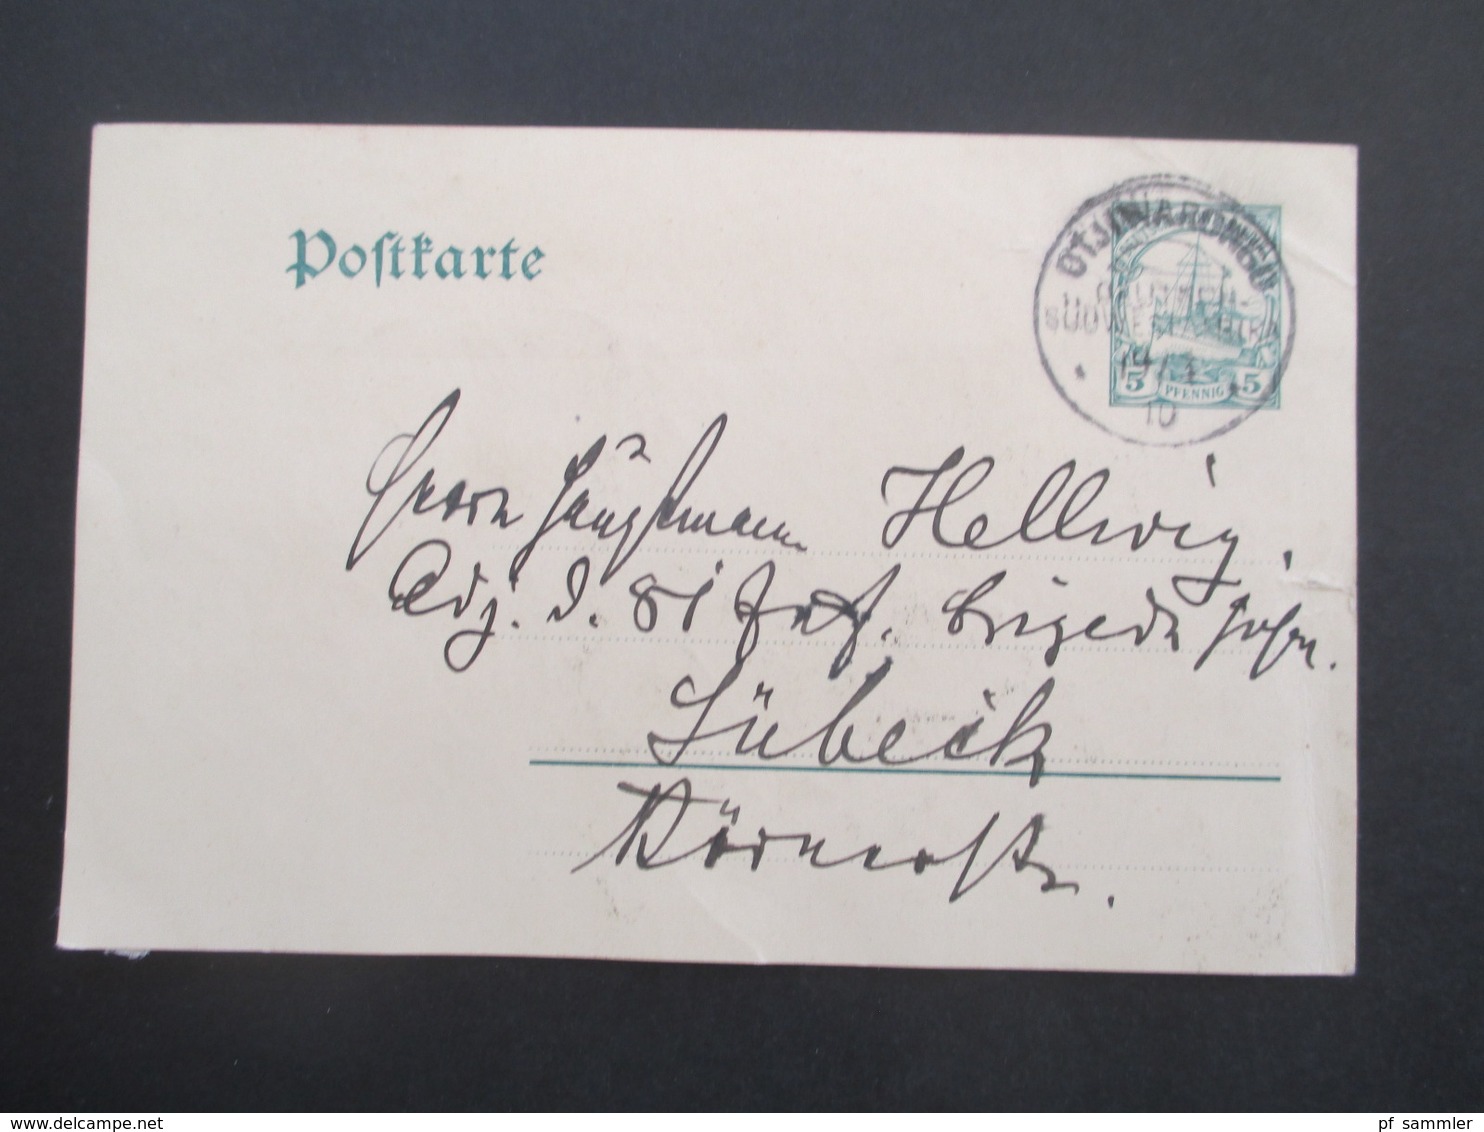 Postkarte
OTJIWARONGO
DEUTSCH-
SÜDWESTAFRIKA
10
5 PFENNIG 5
Herrn Hauptmann Hellwig.
Adj. d. 81 Inf. Brigade
Lübeck
Körnerstr.
pf_sammler